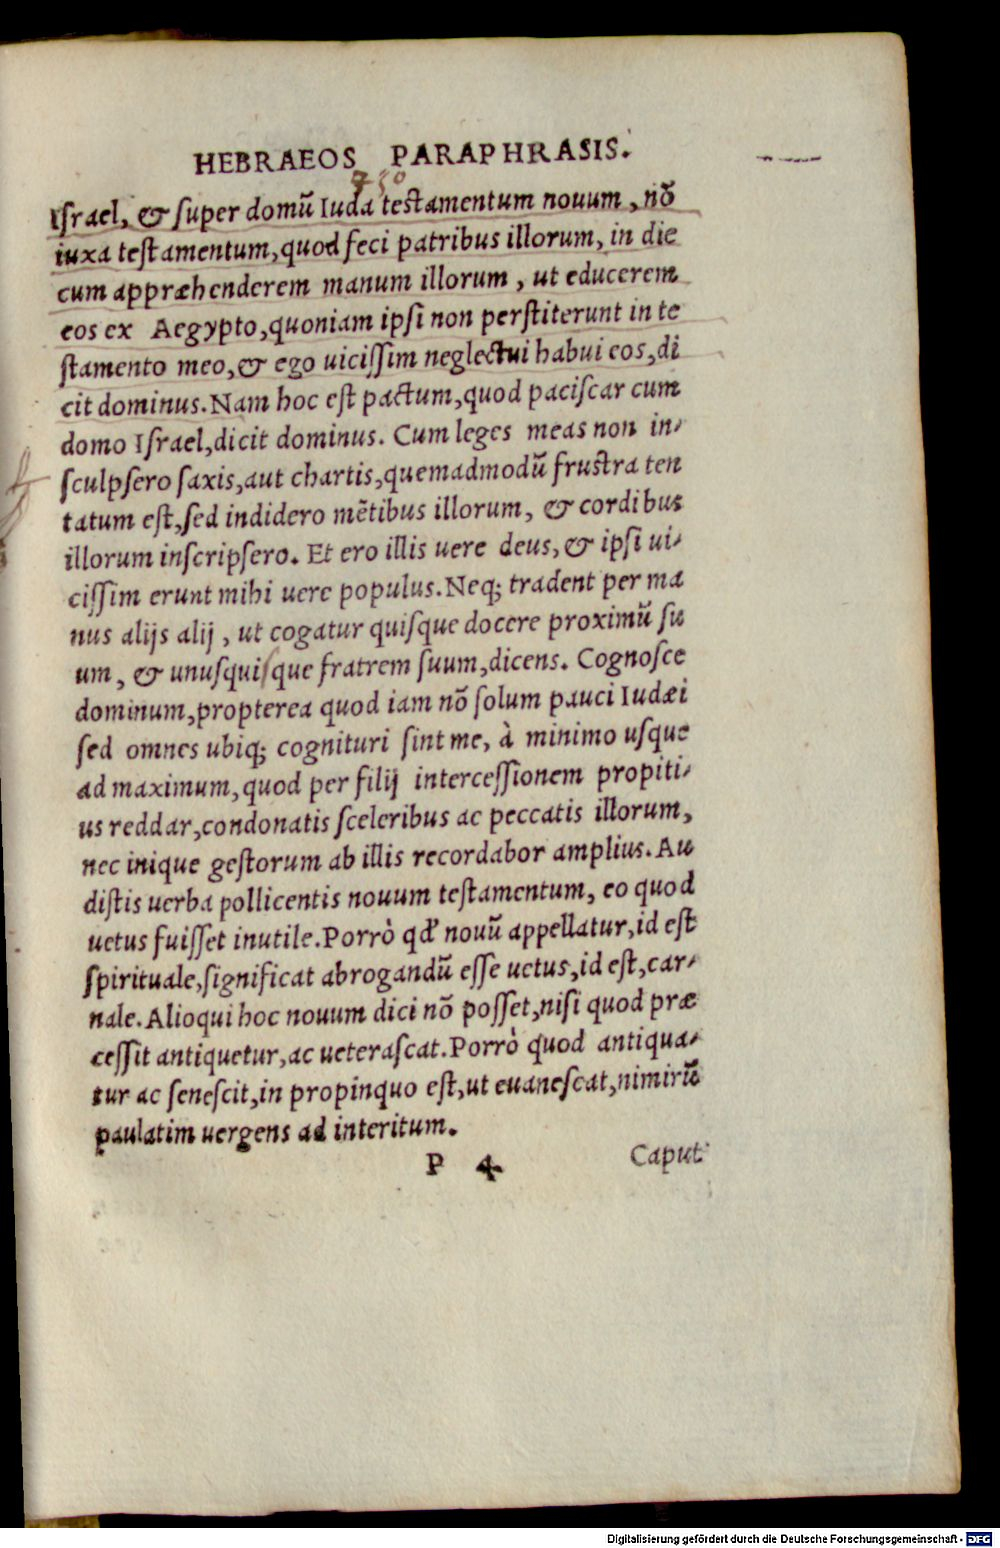 HEBRAEOS PARAPHRASIS.
750
Iſrael, & ſuper domū Iuda teſtamentum nouum, nō
iuxa teſtamentum, quod feci patribus illorum, in die
cum appræhenderem manum illorum, ut educerem
eos ex Aegypto, quoniam ipſi non perſtiterunt in te
ſtamento meo, & ego uiciſſim neglectui habui eos, di
cit dominus. Nam hoc eſt pactum, quod paciſcar cum
domo Iſrael, dicit dominus. Cum leges meas non in-
ſculpſero ſaxis, aut chartis, quemadmodū fruſtra ten
tatum eſt, ſed indidero mētibus illorum, & cordibus
illorum inſcripſero. Et ero illis uere deus, & ipſi ui-
ciſſim erunt mihi uere populus. Neq; tradent per ma
nus alijs alij, ut cogatur quiſque docere proximū ſu
um, & unuſquiſque fratrem ſuum, dicens. Cognoſce
dominum, propterea quod iam nō ſolum pauci Iudæi
ſed omnes ubiq; cognituri ſint me, à minimo uſque
ad maximum, quod per filij interceſſionem propiti-
us reddar, condonatis ſceleribus ac peccatis illorum,
nec inique geſtorum ab illis recordabor amplius. Au
diſtis uerba pollicentis nouum teſtamentum, eo quod
uetus fuiſſet inutile. Porrò qđ nouū appellatur, id eſt
ſpirituale, ſignificat abrogandū eſſe uetus, id eſt, car-
nale. Alioqui hoc nouum dici nō poſſet, niſi quod præ
ceſſit antiquetur, ac ueteraſcat. Porrò quod antiqua-
tur ac ſeneſcit, in propinquo eſt, ut euaneſcat, nimirū
paulatim uergens ad interitum.
P 4 Caput
Digitalisierung gefördert durch die Deutsche Forschungsgemeinschaft - DFG